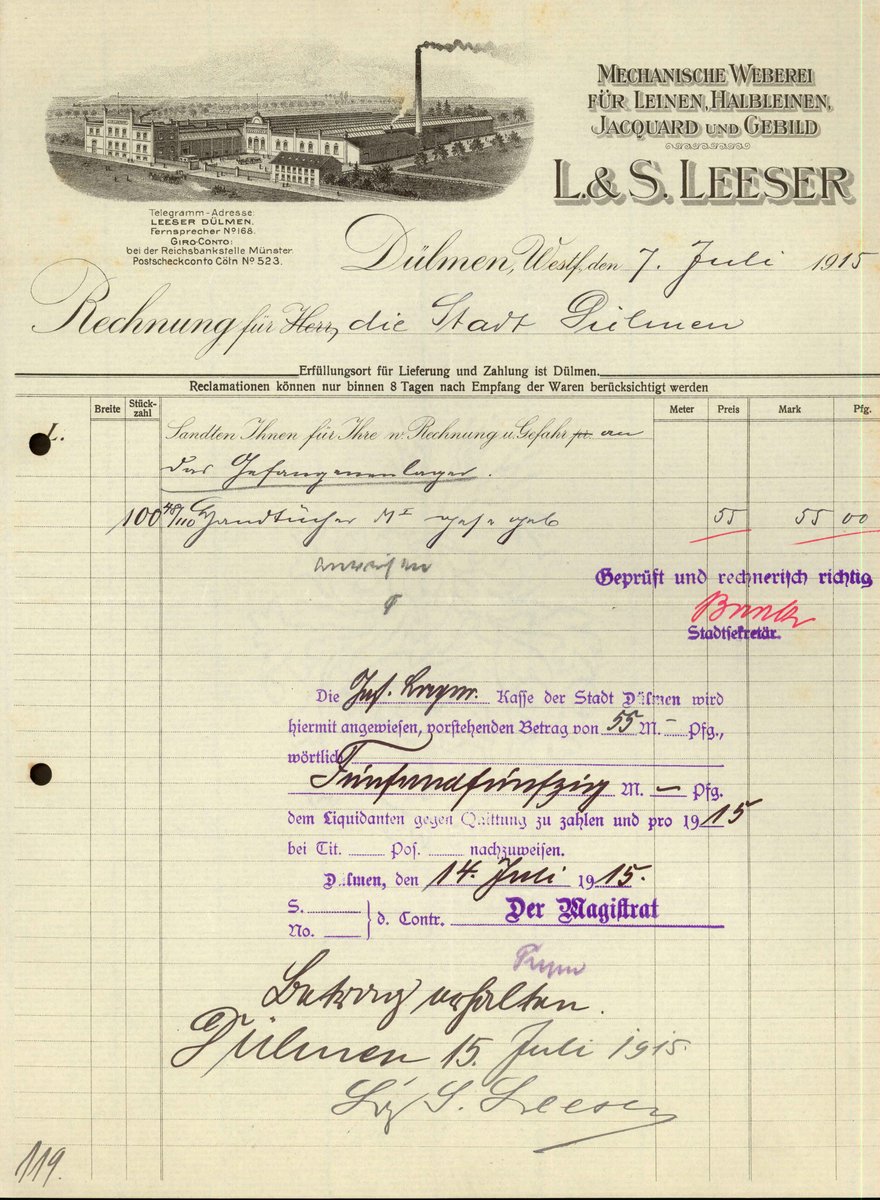 MECHANISCHE WEBEREI
FÜR LEINEN, HALBLEINEN,
JACQUARD UND GEBILD
L. & S. LEESER
Telegramm-Adresse:
LEESER DÜLMEN.
Fernsprecher Nº 168.
GIRO-CONTO:
bei der Reichsbankstelle Münster
Postscheckconto Cöln Nº 523.
Dülmen, Westf., den 7. Juli 1915
Rechnung für Herrn, die Stadt Dülmen
Erfüllungsort für Lieferung und Zahlung ist Dülmen.
Reclamationen können nur binnen 8 Tagen nach Empfang der Waren berücksichtigt werden
Breite Stück-zahl Meter Preis Mark Pfg.
L. Sandten Ihnen für Ihre w. Rechnung u. Gefahr pr. an
das Gefangenenlager.
100 48/110 Handtücher 55 55 00
anweisen
Geprüft und rechnerisch richtig
Stadtsekretär.
Die Gef. Lager. Kasse der Stadt Dülmen wird
hiermit angewiesen, vorstehenden Betrag von 55 M. - Pfg.,
wörtlich
Fünfundfünfzig M. - Pfg.
dem Liquidanten gegen Quittung zu zahlen und pro 1915
bei Tit. Pos. nachzuweisen.
Dülmen, den 14. Juli 1915.
S. d. Contr. Der Magistrat
No.
Betrag erhalten.
Dülmen 15. Juli 1915.
S. Leeser
119.